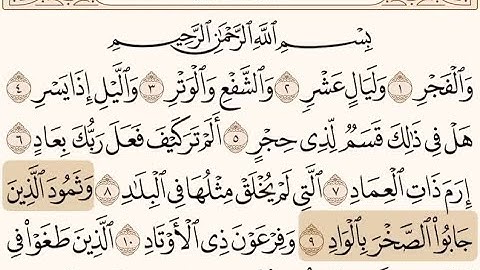 بِسْمِ ٱللَّهِ ٱلرَّحْمَٰنِ ٱلرَّحِيمِ
وَٱلْفَجْرِ ١ وَلَيَالٍ عَشْرٍ ٢ وَٱلشَّفْعِ وَٱلْوَتْرِ ٣ وَٱلَّيْلِ إِذَا يَسْرِ ٤
هَلْ فِى ذَٰلِكَ قَسَمٌ لِّذِى حِجْرٍ ٥ أَلَمْ تَرَ كَيْفَ فَعَلَ رَبُّكَ بِعَادٍ ٦
إِرَمَ ذَاتِ ٱلْعِمَادِ ٧ ٱلَّتِى لَمْ يُخْلَقْ مِثْلُهَا فِى ٱلْبِلَٰدِ ٨ وَثَمُودَ ٱلَّذِينَ
جَابُوا۟ ٱلصَّخْرَ بِٱلْوَادِ ٩ وَفِرْعَوْنَ ذِى ٱلْأَوْتَادِ ١٠ ٱلَّذِينَ طَغَوْا۟ فِى